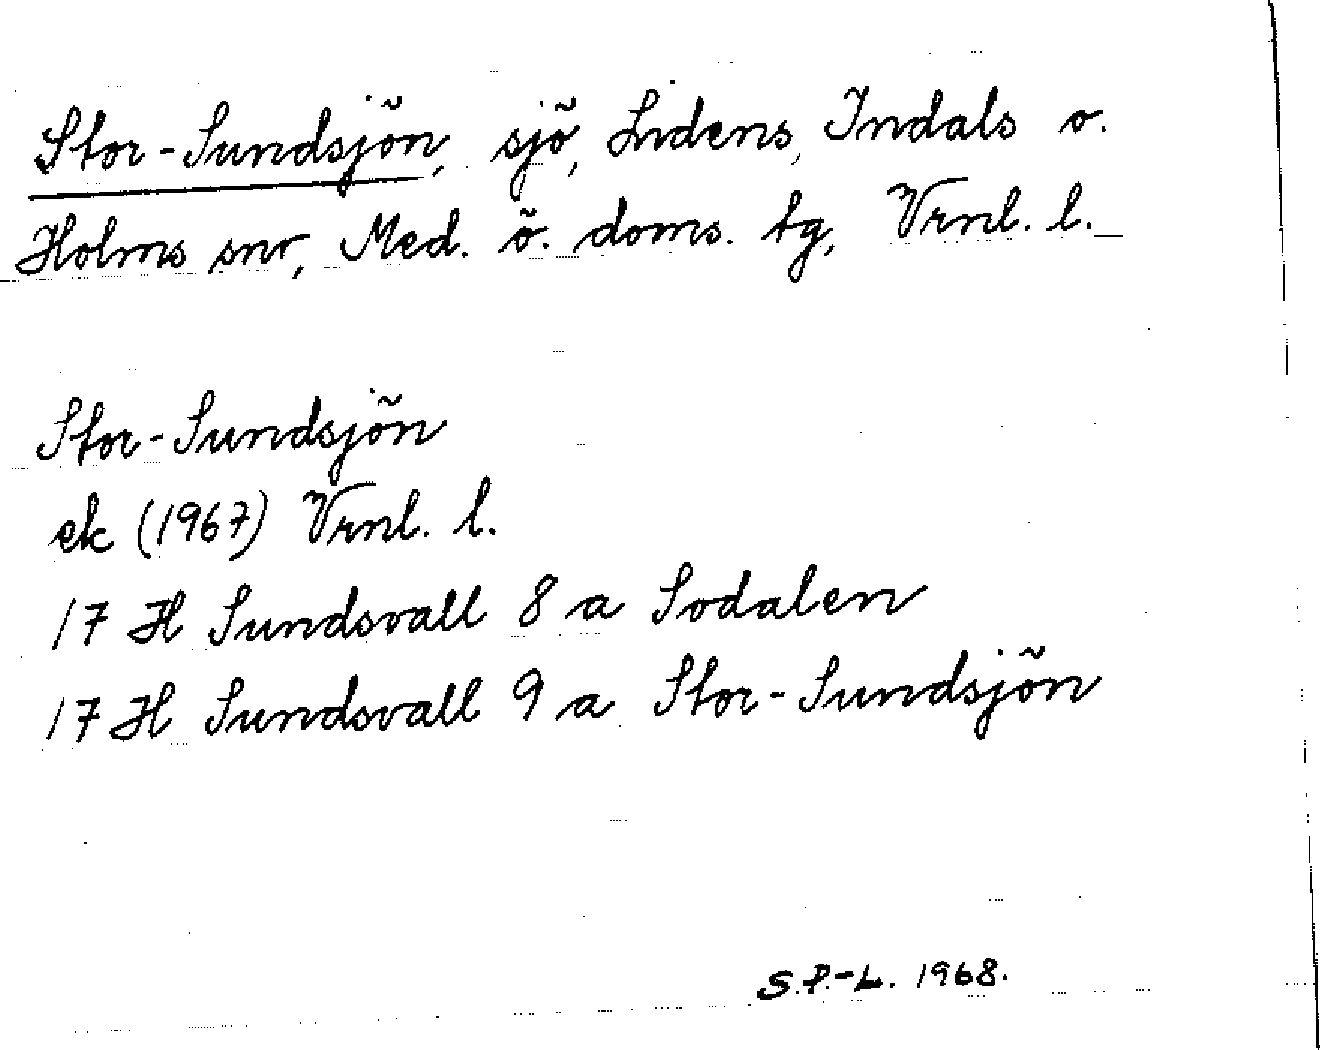 Stor-Sundsjön, sjö, Lidens, Indals o.
Holms snr, Med. ö. doms. tg, Vrnl. l.
Stor-Sundsjön
ek (1967) Vrnl. l.
17 H Sundsvall 8 a Sodalen
17 H Sundsvall 9 a Stor-Sundsjön
S.P.-L. 1968.